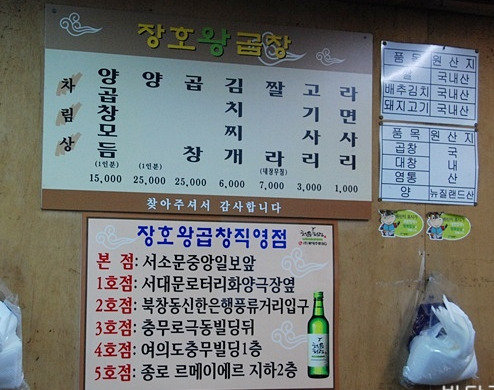 장호왕곱창
차림상
양곱창모듬 (1인분) 15,000
양 (1인분) 25,000
곱창 25,000
김치찌개 6,000
짤라 (내장무침) 7,000
고기사리 3,000
라면사리 1,000
찾아주셔서 감사합니다
품목 원산지
쌀 국내산
배추김치 국내산
돼지고기 국내산
품목 원산지
곱창 국내산
대창
염통
양 뉴질랜드산
장호왕곱창직영점
본 점: 서소문중앙일보앞
1호점: 서대문로터리화양극장옆
2호점: 북창동신한은행풍류거리입구
3호점: 충무로극동빌딩뒤
4호점: 여의도충무빌딩1층
5호점: 종로 르메이에르 지하2층
처음처럼